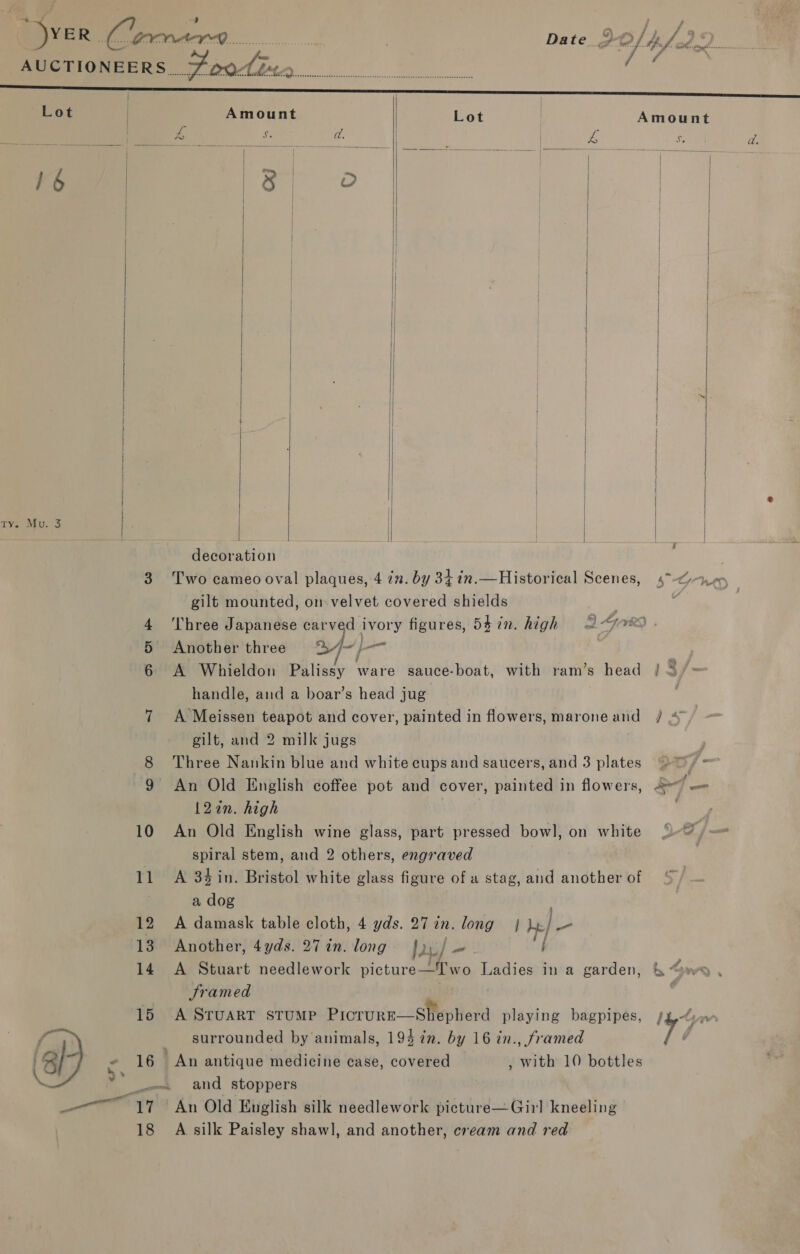 Date 20/4/22
AUCTIONEERS
Lot Amount Lot Amount
£ s. d. £ s. d.
16 8 0
Ty. Mu. 3
decoration
3 Two cameo oval plaques, 4 in. by 3¼ in.—Historical Scenes,
gilt mounted, on velvet covered shields
4 Three Japanese carved ivory figures, 5½ in. high
5 Another three
6 A Whieldon Palissy ware sauce-boat, with ram's head
handle, and a boar's head jug
7 A Meissen teapot and cover, painted in flowers, marone and
gilt, and 2 milk jugs
8 Three Nankin blue and white cups and saucers, and 3 plates
9 An Old English coffee pot and cover, painted in flowers,
12 in. high
10 An Old English wine glass, part pressed bowl, on white
spiral stem, and 2 others, engraved
11 A 3½ in. Bristol white glass figure of a stag, and another of
a dog
12 A damask table cloth, 4 yds. 27 in. long
13 Another, 4 yds. 27 in. long
14 A Stuart needlework picture—Two Ladies in a garden,
framed
15 A STUART STUMP PICTURE—Shepherd playing bagpipes,
surrounded by animals, 19½ in. by 16 in., framed
16 An antique medicine case, covered , with 10 bottles
and stoppers
17 An Old English silk needlework picture—Girl kneeling
18 A silk Paisley shawl, and another, cream and red